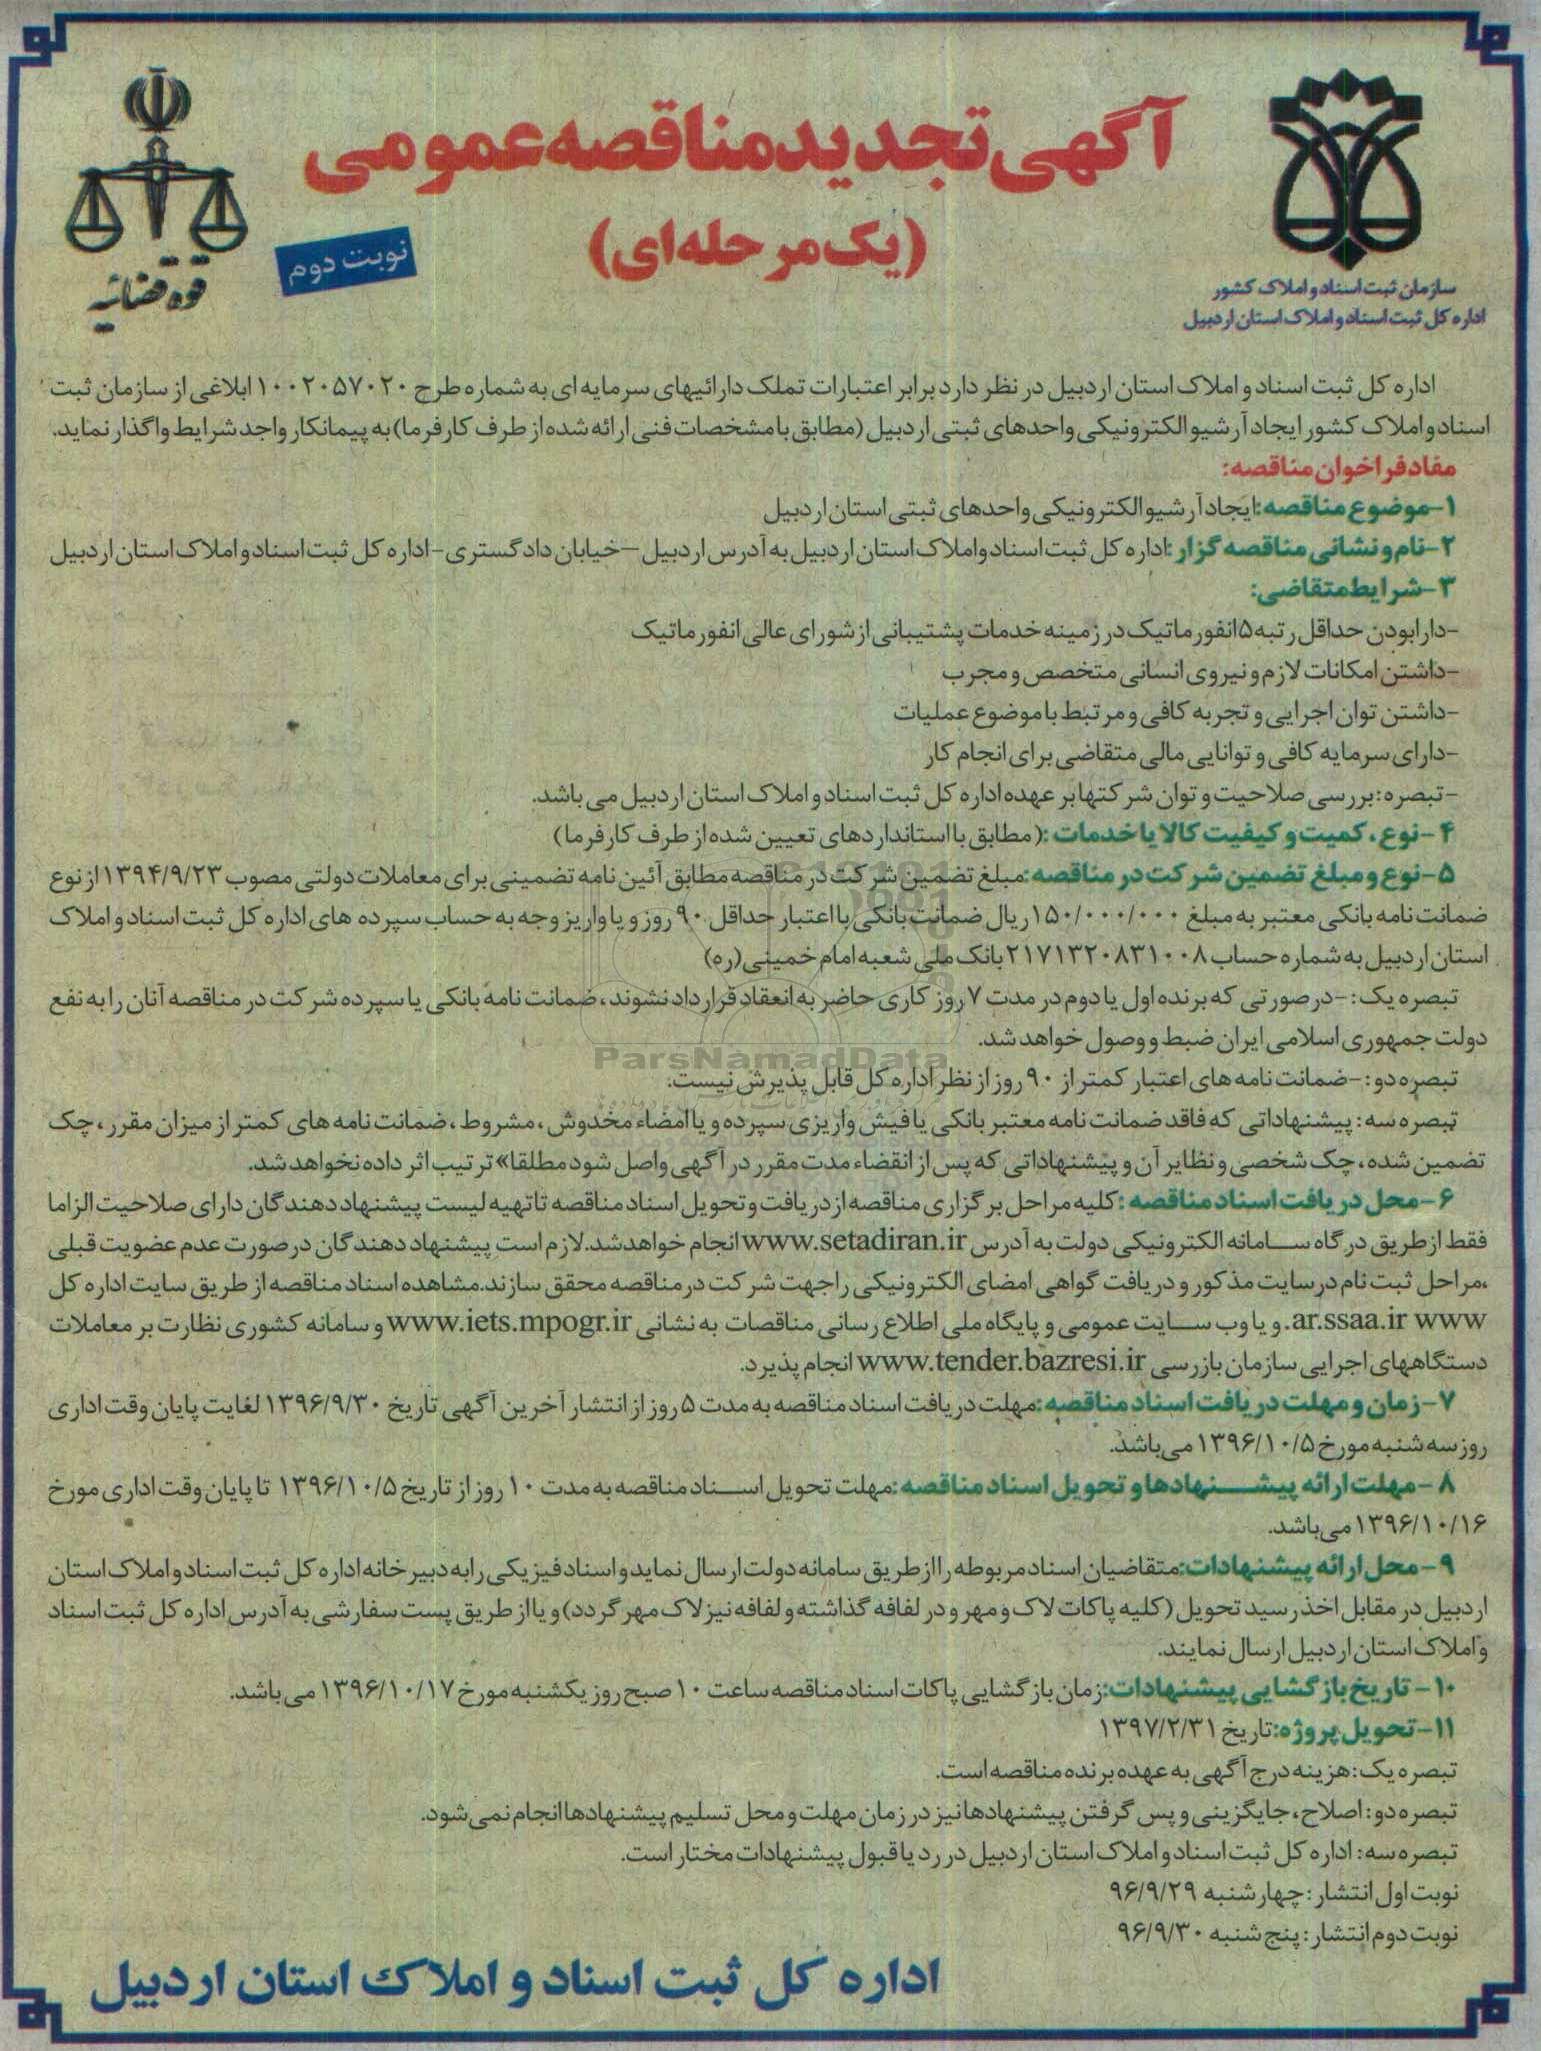 آگهی تجدید مناقصه عمومی
(یک مرحله‌ای)
نوبت دوم
قوه قضائیه
سازمان ثبت اسناد و املاک کشور
اداره کل ثبت اسناد و املاک استان اردبیل
اداره کل ثبت اسناد و املاک استان اردبیل در نظر دارد برابر اعتبارات تملک دارائیهای سرمایه ای به شماره طرح ۱۰۰۲۰۵۷۰۲۰ ابلاغی از سازمان ثبت
اسناد و املاک کشور ایجاد آرشیو الکترونیکی واحدهای ثبتی اردبیل (مطابق با مشخصات فنی ارائه شده از طرف کارفرما) به پیمانکار واجد شرایط واگذار نماید.
مفاد فراخوان مناقصه:
۱-موضوع مناقصه:ایجاد آرشیو الکترونیکی واحدهای ثبتی استان اردبیل
۲-نام و نشانی مناقصه گزار :اداره کل ثبت اسناد و املاک استان اردبیل به آدرس اردبیل –خیابان دادگستری-اداره کل ثبت اسناد و املاک استان اردبیل
۳-شرایط متقاضی:
-دارا بودن حداقل رتبه ۵ انفورماتیک در زمینه خدمات پشتیبانی از شورای عالی انفورماتیک
-داشتن امکانات لازم و نیروی انسانی متخصص و مجرب
-داشتن توان اجرایی و تجربه کافی و مرتبط با موضوع عملیات
-دارای سرمایه کافی و توانایی مالی متقاضی برای انجام کار
-تبصره: بررسی صلاحیت و توان شرکتها بر عهده اداره کل ثبت اسناد و املاک استان اردبیل می باشد.
۴-نوع، کمیت و کیفیت کالا یا خدمات :(مطابق با استانداردهای تعیین شده از طرف کارفرما)
۵-نوع و مبلغ تضمین شرکت در مناقصه:مبلغ تضمین شرکت در مناقصه مطابق آئین نامه تضمینی برای معاملات دولتی مصوب ۱۳۹۴/۹/۲۳ از نوع
ضمانت نامه بانکی معتبر به مبلغ ۱۵۰/۰۰۰/۰۰۰ ریال ضمانت بانکی با اعتبار حداقل ۹۰ روز و یا واریز وجه به حساب سپرده های اداره کل ثبت اسناد و املاک
استان اردبیل به شماره حساب ۲۱۷۱۳۲۰۸۳۱۰۰۸ بانک ملی شعبه امام خمینی(ره)
تبصره یک: -در صورتی که برنده اول یا دوم در مدت ۷ روز کاری حاضر به انعقاد قرارداد نشوند، ضمانت نامه بانکی یا سپرده شرکت در مناقصه آنان را به نفع
دولت جمهوری اسلامی ایران ضبط و وصول خواهد شد.
ParsNamadData
تبصره دو: -ضمانت نامه های اعتبار کمتر از ۹۰ روز از نظر اداره کل قابل پذیرش نیست.
تبصره سه: پیشنهاداتی که فاقد ضمانت نامه معتبر بانکی یا فیش واریزی سپرده و یا امضاء مخدوش، مشروط، ضمانت نامه های کمتر از میزان مقرر، چک
تضمین شده، چک شخصی و نظایر آن و پیشنهاداتی که پس از انقضاء مدت مقرر در آگهی واصل شود مطلقا» ترتیب اثر داده نخواهد شد.
۶-محل دریافت اسناد مناقصه :کلیه مراحل برگزاری مناقصه از دریافت و تحویل اسناد مناقصه تا تهیه لیست پیشنهاد دهندگان دارای صلاحیت الزاما
فقط از طریق درگاه سامانه الکترونیکی دولت به آدرس www.setadiran.ir انجام خواهد شد. لازم است پیشنهاد دهندگان در صورت عدم عضویت قبلی
،مراحل ثبت نام در سایت مذکور و دریافت گواهی امضای الکترونیکی را جهت شرکت در مناقصه محقق سازند. مشاهده اسناد مناقصه از طریق سایت اداره کل
ar.ssaa.ir www. و یا وب سایت عمومی و پایگاه ملی اطلاع رسانی مناقصات به نشانی www.iets.mpogr.ir و سامانه کشوری نظارت بر معاملات
دستگاههای اجرایی سازمان بازرسی www.tender.bazresi.ir انجام پذیرد.
۷-زمان و مهلت دریافت اسناد مناقصه:مهلت دریافت اسناد مناقصه به مدت ۵ روز از انتشار آخرین آگهی تاریخ ۱۳۹۶/۹/۳۰ لغایت پایان وقت اداری
روز سه شنبه مورخ ۱۳۹۶/۱۰/۵ می باشد.
۸-مهلت ارائه پیشنهادها و تحویل اسناد مناقصه:مهلت تحویل اسناد مناقصه به مدت ۱۰ روز از تاریخ ۱۳۹۶/۱۰/۵ تا پایان وقت اداری مورخ
۱۳۹۶/۱۰/۱۶ می باشد.
۹-محل ارائه پیشنهادات:متقاضیان اسناد مربوطه را از طریق سامانه دولت ارسال نماید و اسناد فیزیکی را به دبیرخانه اداره کل ثبت اسناد و املاک استان
اردبیل در مقابل اخذ رسید تحویل (کلیه پاکات لاک و مهر و در لفافه گذاشته و لفافه نیز لاک مهر گردد) و یا از طریق پست سفارشی به آدرس اداره کل ثبت اسناد
و املاک استان اردبیل ارسال نمایند.
۱۰- تاریخ بازگشایی پیشنهادات:زمان بازگشایی پاکات اسناد مناقصه ساعت ۱۰ صبح روز یکشنبه مورخ ۱۳۹۶/۱۰/۱۷ می باشد.
۱۱-تحویل پروژه:تاریخ ۱۳۹۷/۲/۳۱
تبصره یک: هزینه درج آگهی به عهده برنده مناقصه است.
تبصره دو: اصلاح، جایگزینی و پس گرفتن پیشنهادها نیز در زمان مهلت و محل تسلیم پیشنهادها انجام نمی شود.
تبصره سه: اداره کل ثبت اسناد و املاک استان اردبیل در رد یا قبول پیشنهادات مختار است.
نوبت اول انتشار: چهارشنبه ۹۶/۹/۲۹
نوبت دوم انتشار: پنج شنبه ۹۶/۹/۳۰
اداره کل ثبت اسناد و املاک استان اردبیل